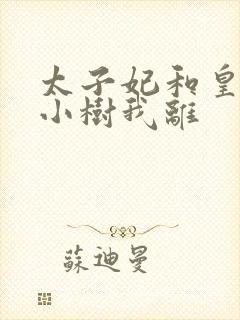 太子妃和皇
小樹我離
蘇迪曼